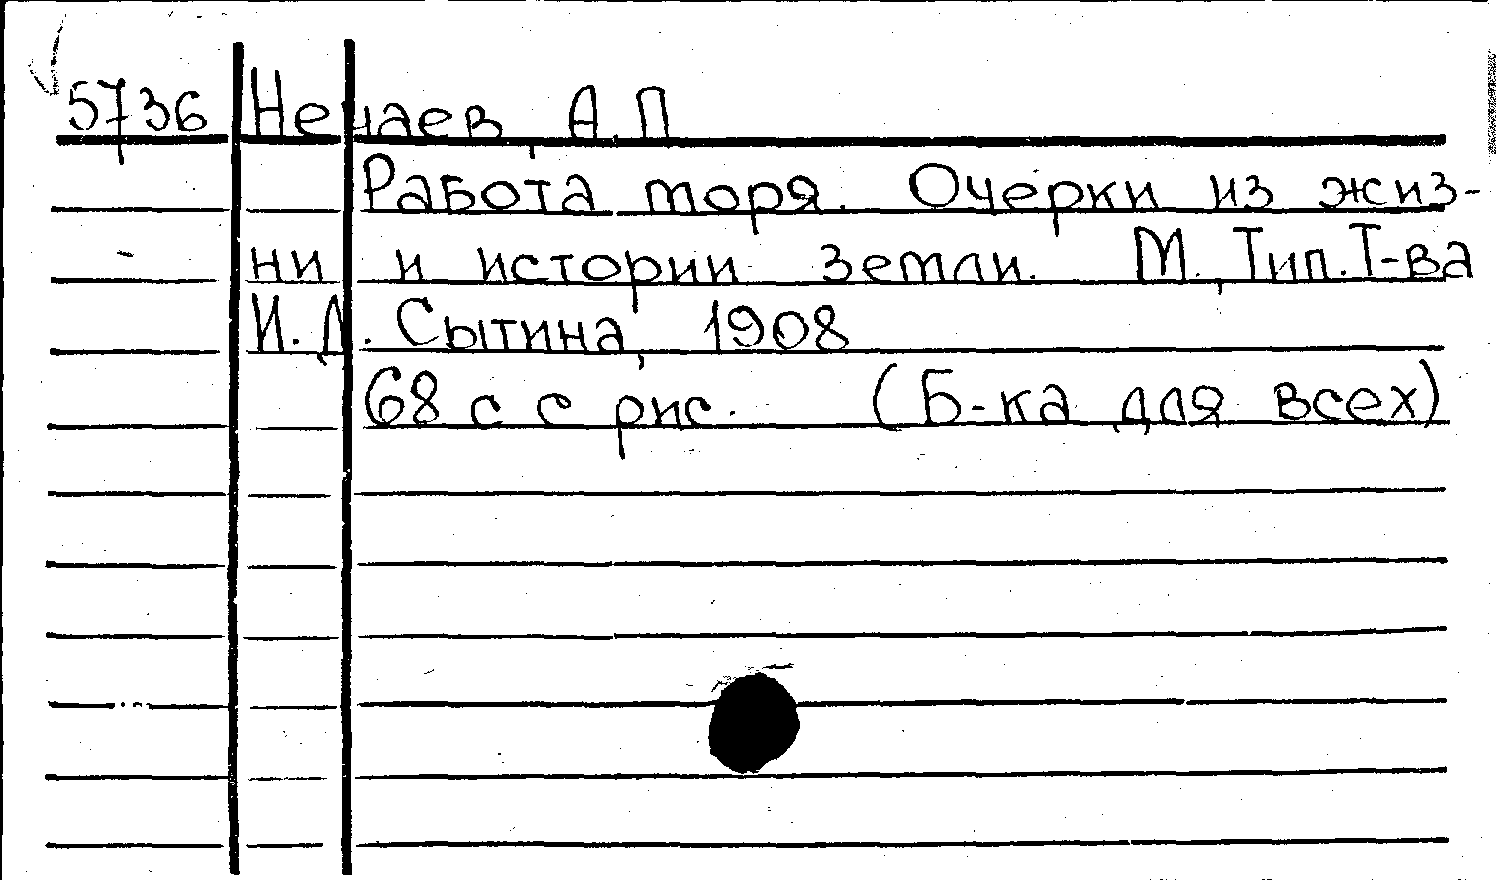 5736 Нечаев, А.П
Работа моря. Очерки из жиз-
ни и истории земли. М., Тип. Т-ва
И.Д. Сытина, 1908
68 с с рис. (Б-ка для всех)